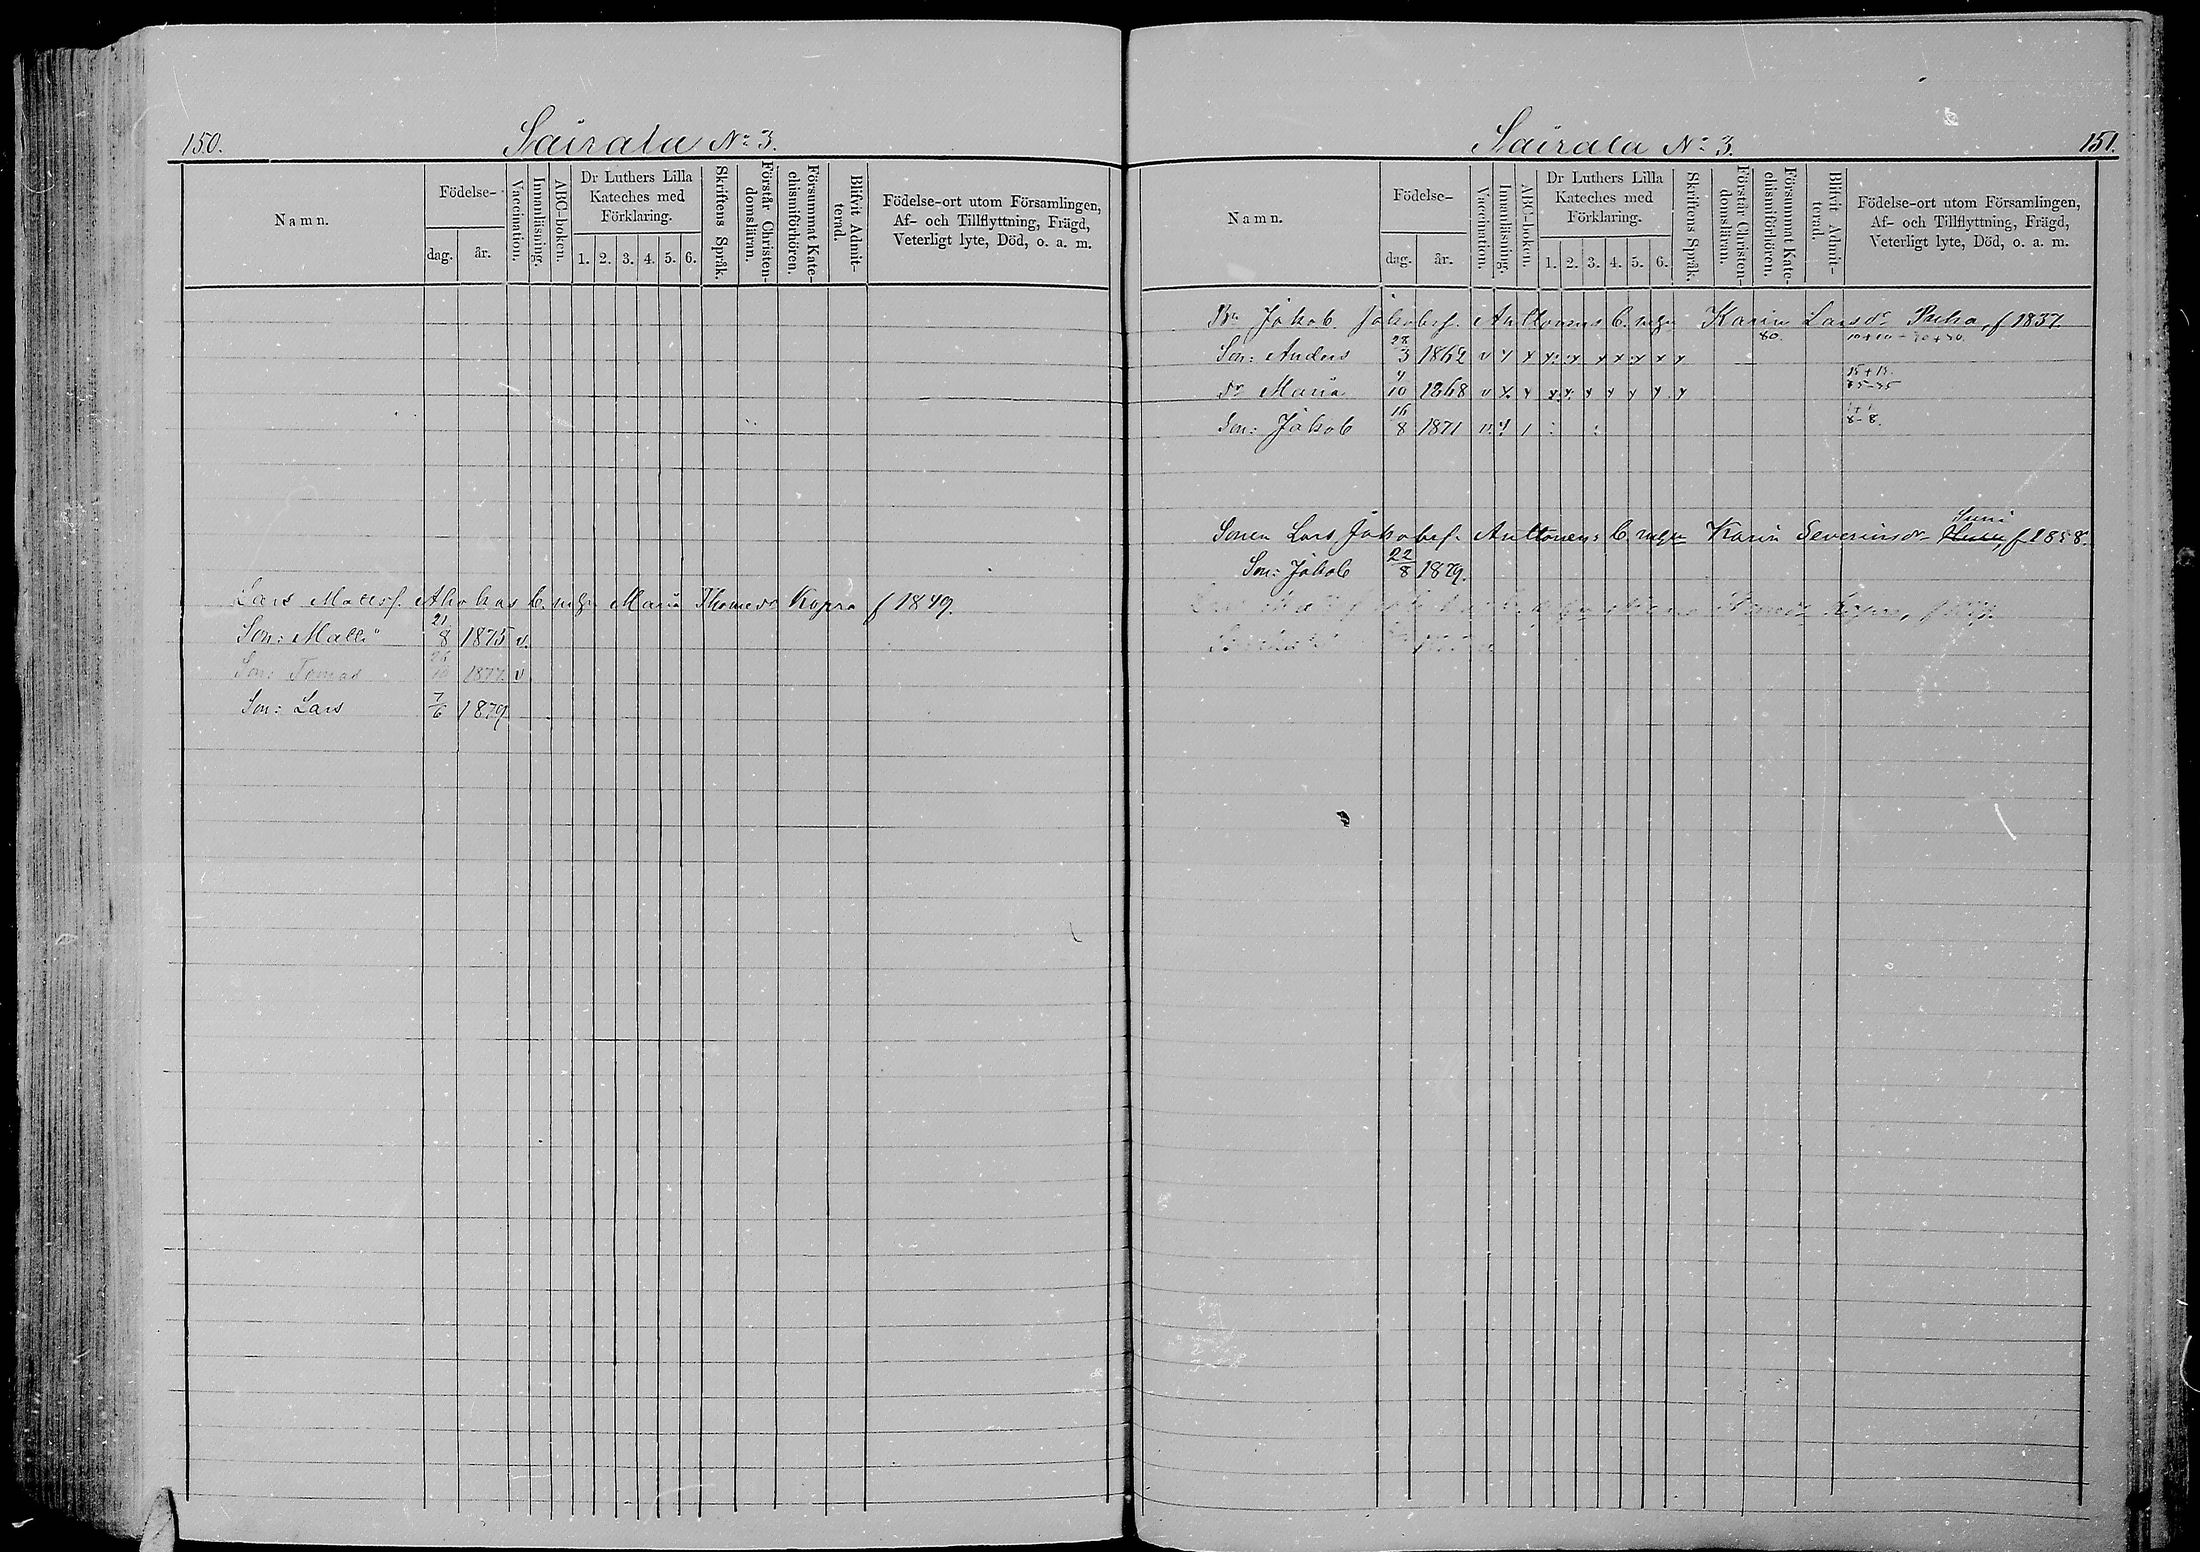 150.
Sairala No 3.
Namn.
Födelse-
dag.
år.
Vaccination.
Innanläsning.
ABC-boken.
Dr Luthers Lilla
Kateches med
Förklaring.
1. 2. 3. 4. 5. 6.
Skriftens Språk.
Förstår Christen-
domsläran.
Försummat Kate-
chismiförhören.
Blifvit Admit-
terad.
Födelse-ort utom Församlingen,
Af- och Tillflyttning, Frägd,
Veterligt lyte, Död, o. a. m.
Lars Matts. Ahokas C. Maria Thomedr Kopra f 1849.
Son: Matti 21/8 1875 v.
Son: Tomas 1877 v
Son: Lars 7/6 1879
Sairala No 3.
151.
Namn.
Födelse-
dag.
år.
Vaccination.
Innanläsning.
ABC-boken.
Dr Luthers Lilla
Kateches med
Förklaring.
1. 2. 3. 4. 5. 6.
Skriftens Språk.
Förstår Christen-
domsläran.
Försummat Kate-
chismiförhören.
Blifvit Admit-
terad.
Födelse-ort utom Församlingen,
Af- och Tillflyttning, Frägd,
Veterligt lyte, Död, o. a. m.
Jakob Jakobsf. Anttonens C. Karin Larsdr f 1837.
Son: Anders 28/3 1862 v 80.
Dr Maria 10 1868 v
Son: Jakob 16/8 1871 v.
Sonen Lars Jakobsf. Anttonens C. Karin Severinsdr f 1858.
Son: Jakob 22/8 1879.